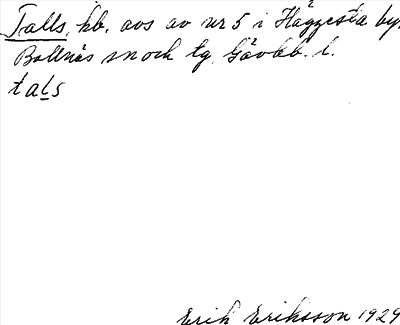 Talls, hb. avs av nr 5 i Häggesta by,
Bollnäs sn och tg, Gävleb. l.
tals
Erik Eriksson 1929